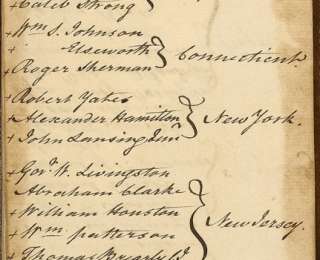 + Caleb Strong
+ Wm S. Johnson
+ Elseworth } Connecticut.
+ Roger Sherman
+ Robert Yates
+ Alexander Hamilton } New York.
+ John Lansing Junr
+ Govr. W. Livingston
Abraham Clarke
+ William Houston
+ Wm. patterson } New Jersey.
+ Thomas Brearly